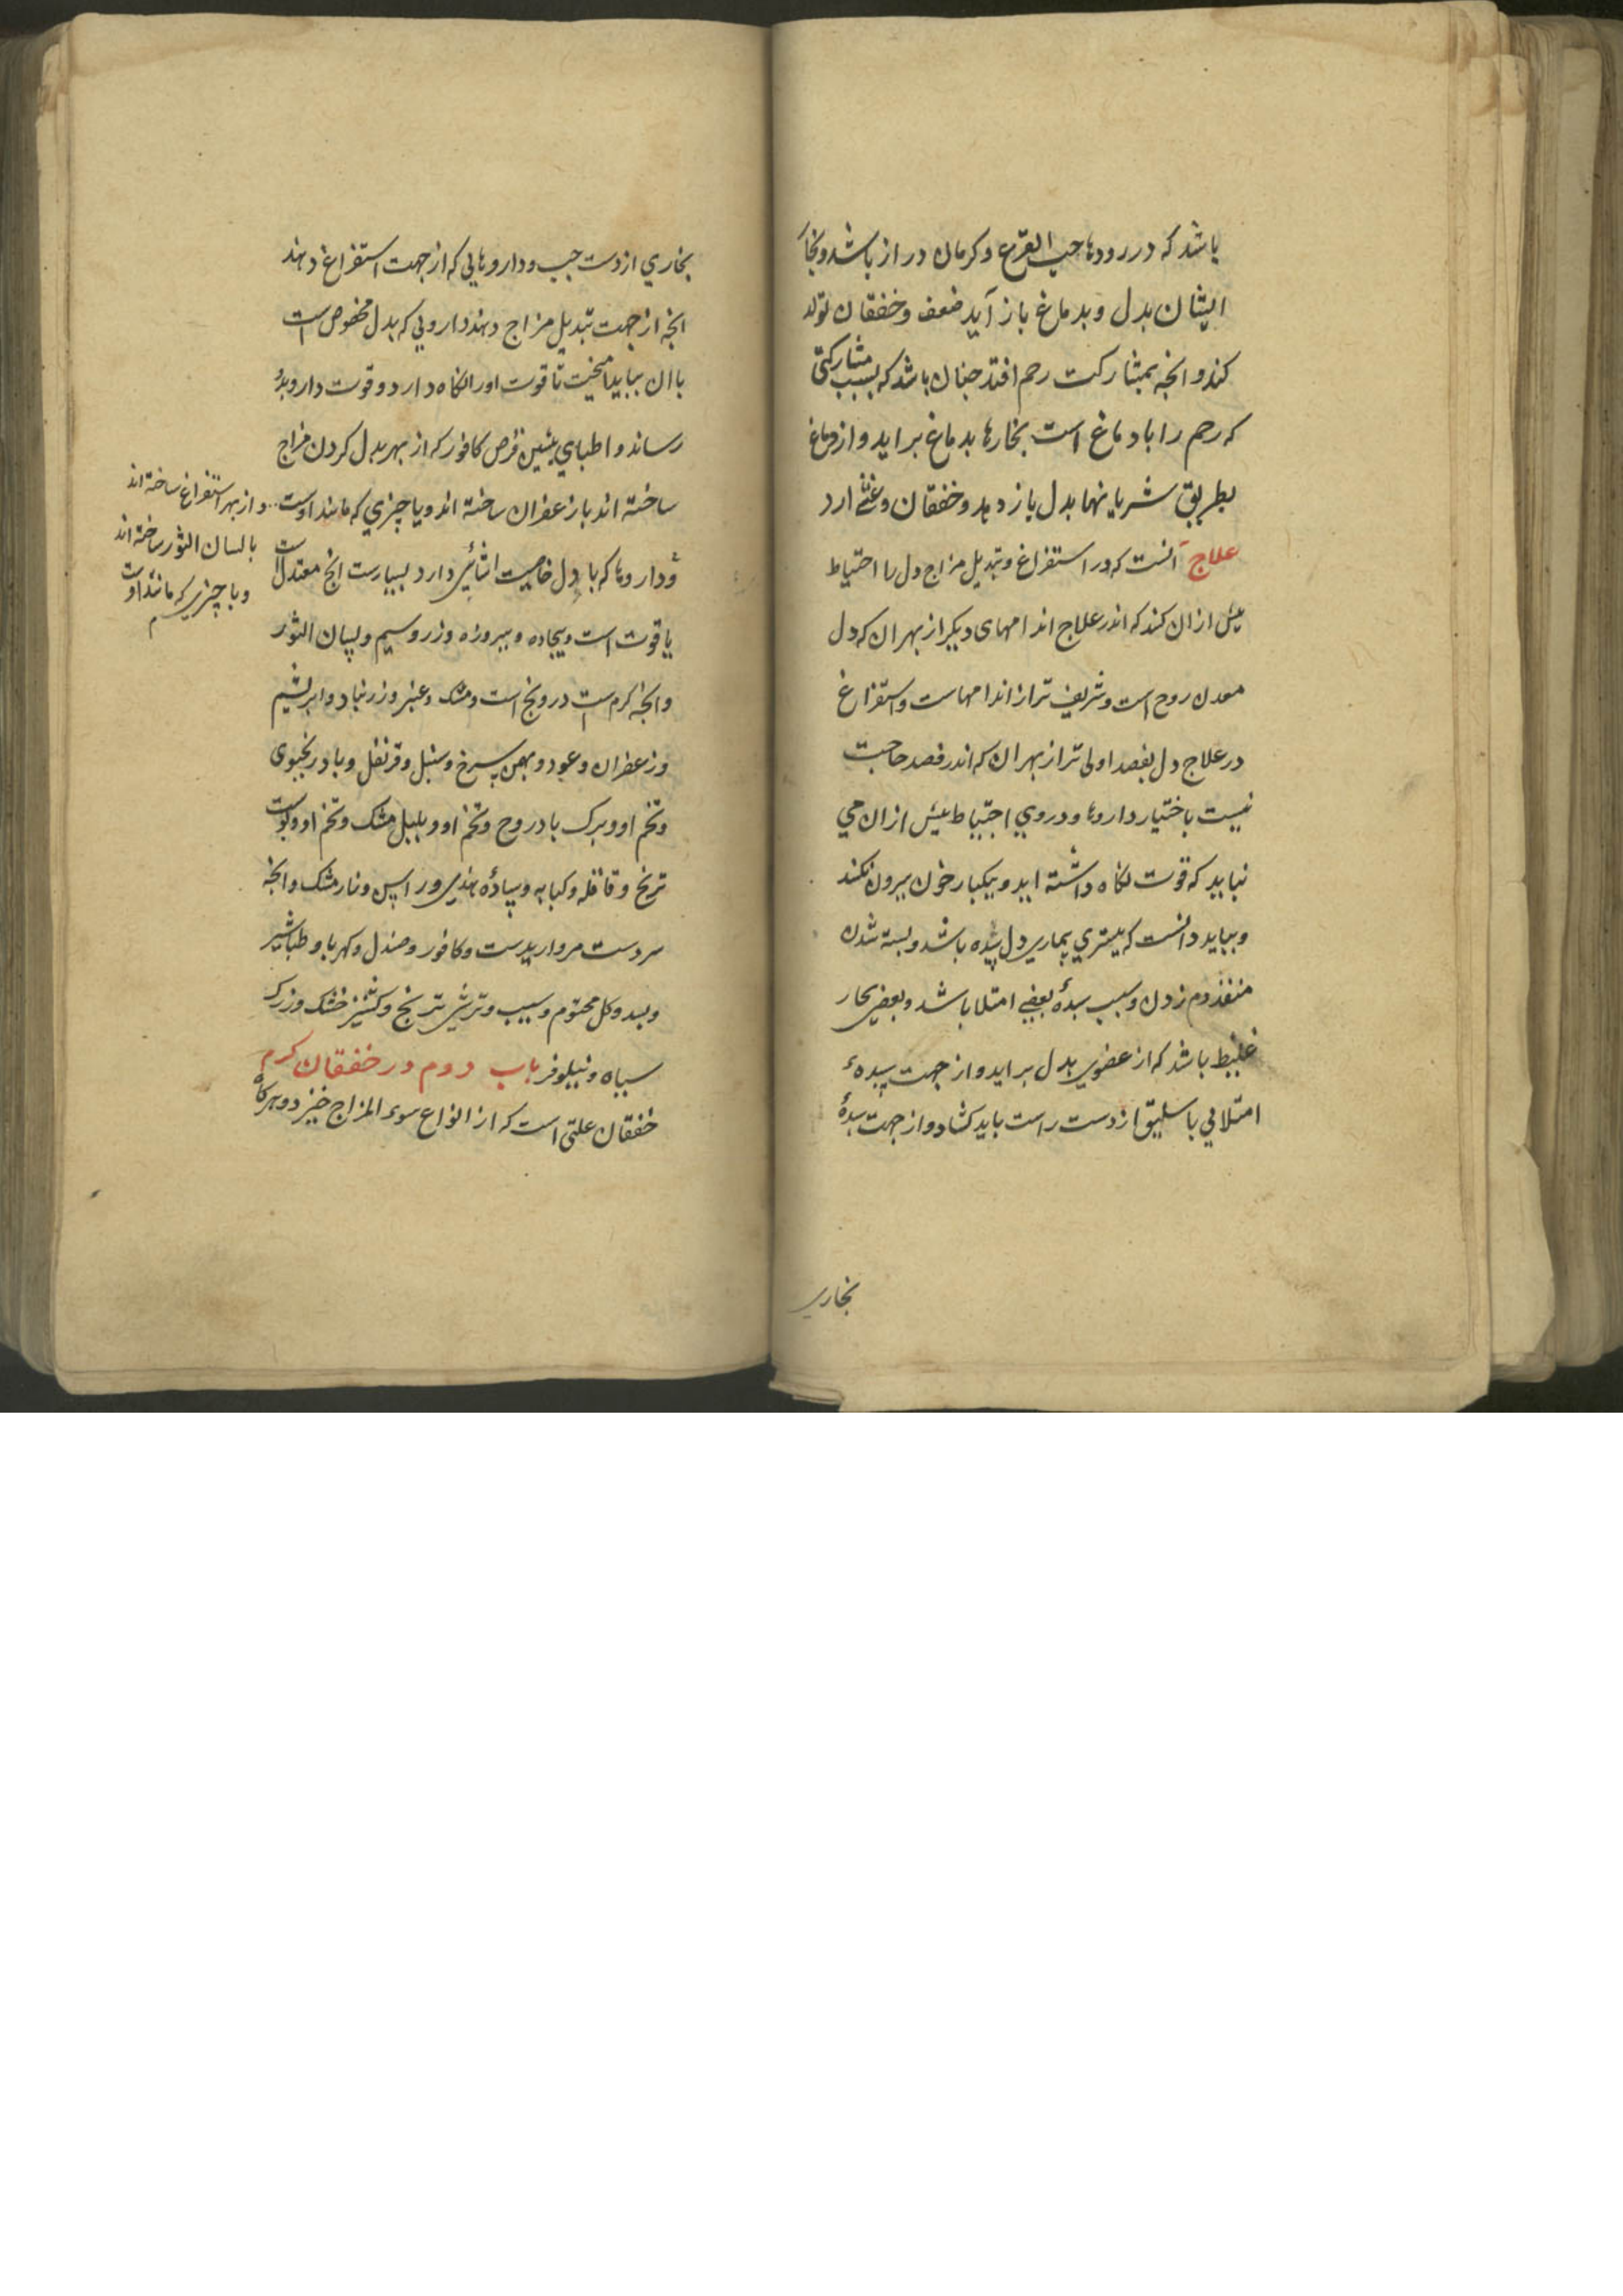 باشد که در رودها حب القرع و کرمان دراز باشد و بخار
ایشان بدل و بدماغ باز آید ضعف و خفقان تولد
کند و انچه بمشارکت رحم افتد چنان باشد که بسبب مشارکتی
که رحم را با دماغ است بخارها بدماغ براید و از دماغ
بطریق شریانها بدل باز دهد و خفقان و غشی ارد
علاج آنست که در استفراغ و تبدیل مزاج دل را احتیاط
بیش ازان کند که اندر علاج اندامهای دیکر از بهر ان که دل
معدن روح است و شریف تر از اندامهاست و استفراغ
در علاج دل بفصد اولی تر از بهر ان که اندر فصد حاجت
نیست باختیار داروها و در وی احتیاط بیش ازان می
نباید که قوت نکاه داشته اید و بیکبار خون بیرون نکند
و بباید دانست که بیشتری بیماری دل سده باشد و بسته شدن
منفذ دم زدن و سبب سدهٔ بعضی امتلا باشد و بعضی بخار
غلیظ باشد که از عضوی بدل براید و از جهت سدهء
امتلایی باسلیق از دست راست باید کشاد و از جهت سدهٔ
بخاری
بخاری از دست چپ و داروهایی که از جهت استفراغ دهند
انچه از جهت تبدیل مزاج دهند دارویی که بدل مخصوص است
با ان بباید امیخت تا قوت او را نکاه دارد و قوت دارو بدو
رساند و اطبای پیشین قرص کافور که از بهر بدل کردن مزاج
ساخته اند با زعفران ساخته اند و یا چیزی که مانند اوست
و از بهر استفراغ ساخته اند
با لسان الثور ساخته اند
و یا چیزی که مانند اوست
و داروها که با دل خاصیت اشنایی دارد بسیارست انچ معتدل است
یاقوت است و بیجاده و پیروزه و زر و سیم و لسان الثور
و انچه کرم است درونج است و مشک و عنبر و زرنباد و ابریشم
و زعفران و عود و بهمن سرخ و سنبل و قرنفل و بادرنجبوی
و تخم او و برک بادروج و تخم او و بلبل مشک و تخم او و پوست
ترنج و قاقله و کبابه و سادهٔ هندی و راسن و نارمشک و انچه
سردست مروارید ست و کافور و صندل و کهربا و طباشیر
و بسد و کل مختوم و سیب و ترشی ترنج و کشنیز خشک و زرک
سیاه و نیلوفر باب دوم در خفقان کرم
خفقان علتی است که از انواع سوء المزاج خیزد و هرکاه